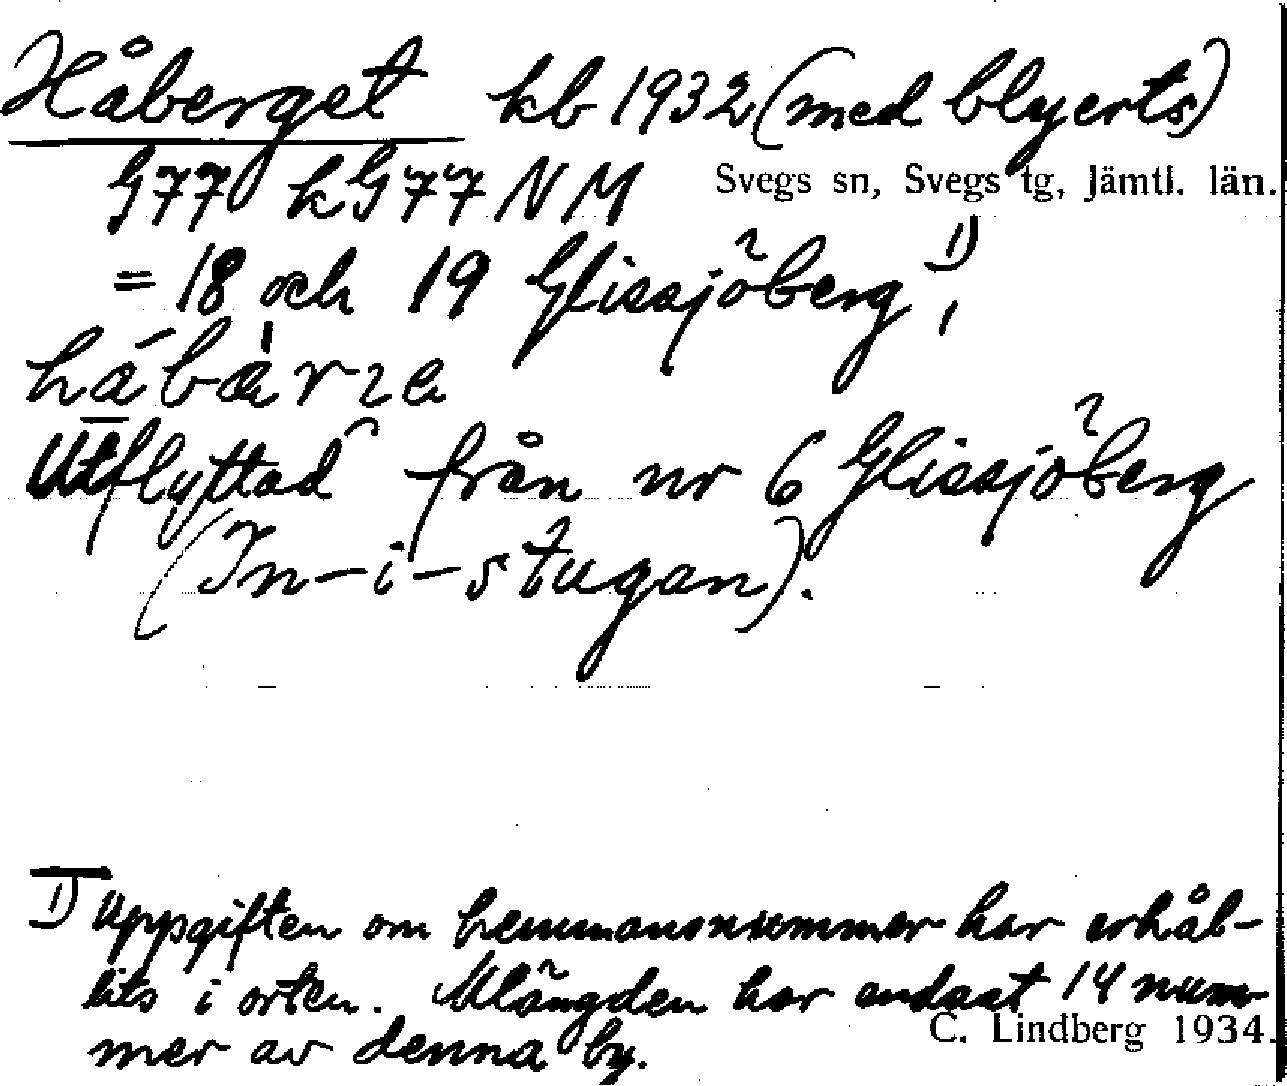 Håberget kb 1932 (med blyerts)
G77 kG77 NM Svegs sn, Svegs tg, Jämtl. län.
= 18 och 19 Glissjöberg 1),
Utflyttad från nr 6 Glissjöberg
(In-i-stugan).
1) Uppgiften om hemmansnummer har erhål-
lits i orten. Mlängden har endast 14 num-
mer av denna by.
C. Lindberg 1934.